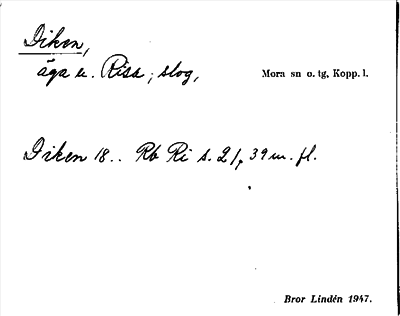 Diken,
äga u. Risa; slog,
Mora sn o. tg, Kopp. l.
Diken 18.. Rb Ri s. 21, 39 m. fl.
Bror Lindén 1947.